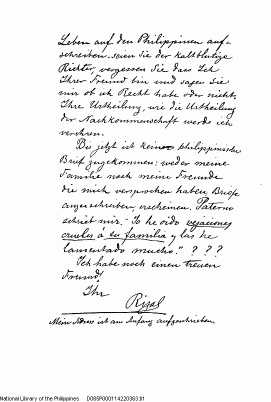 Leben auf den Philippinen auf-
schreiben. seien Sie der kaltblutige
Richter, vergessen Sie dass Ich
Ihrer Freund bin und sagen Sie
mir ob ich Recht habe oder nicht;
Ihre Urtheilung, wie die Urtheilung
der Nachkommenschaft werde ich
verehren.
Bis jetzt ist kein philippinische
Brief zugekommen: weder meine
Familie noch meine Freunde
die mich versprochen haben Briefe
zu schreiben, erscheinen. Paterno
schrieb mir: "Yo he oido vejaciones
á tu familia y las he
lamentado mucho." ? ? ?
Ich habe noch einen treuen
Freund!
Ihr
Rizal
Mein Adress ist am Anfang aufgeschrieben
National Library of the Philippines